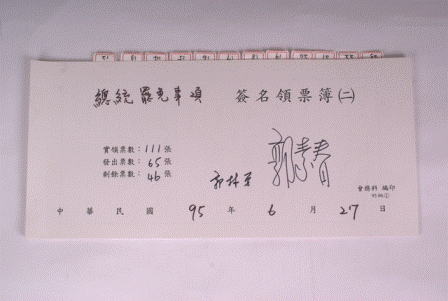 總統罷免事項 簽名領票簿(二)
實領票數：111張
發出票數：65張
剩餘票數：46張
會務科 編印
中華民國 95 年 6 月 27 日